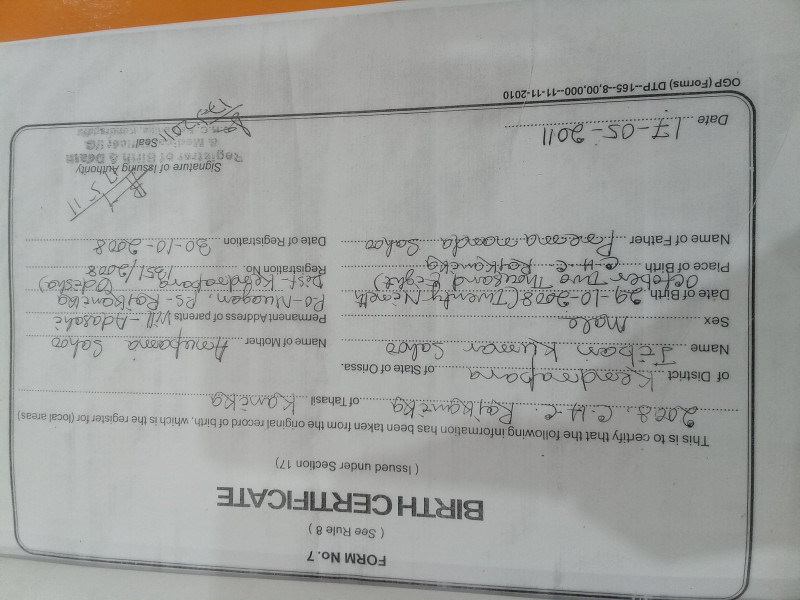 FORM No. 7
( See Rule 8 )
BIRTH CERTIFICATE
( Issued under Section 17)
This is to certify that the following information has been taken from the original record of birth, which is the register for (local areas)
2008, C.H.C. Rajkanika of Tahasil Kanika
of District Kendrapara of State of Orissa.
Name Jiban Kumar Sahoo
Name of Mother Anupama Sahoo
Sex Male
Permanent Address of parents Vill - Adasahi
Date of Birth 29-10-2008 (Twenty Nineth
Po-Nuagan, Ps- Rajkanika
October Two Thousand Eight)
Dist- Kendrapara (Odesha)
Place of Birth C.H.C Rajkanika
Registration No. 1351/2008
Name of Father Premananda Sahoo
Date of Registration 30-10-2008
Signature of Issuing Authority
Registrar of Birth & Death
Seal
Date 17-05-2011
OGP (Forms) DTP--165--8,00,000--11-11-2010